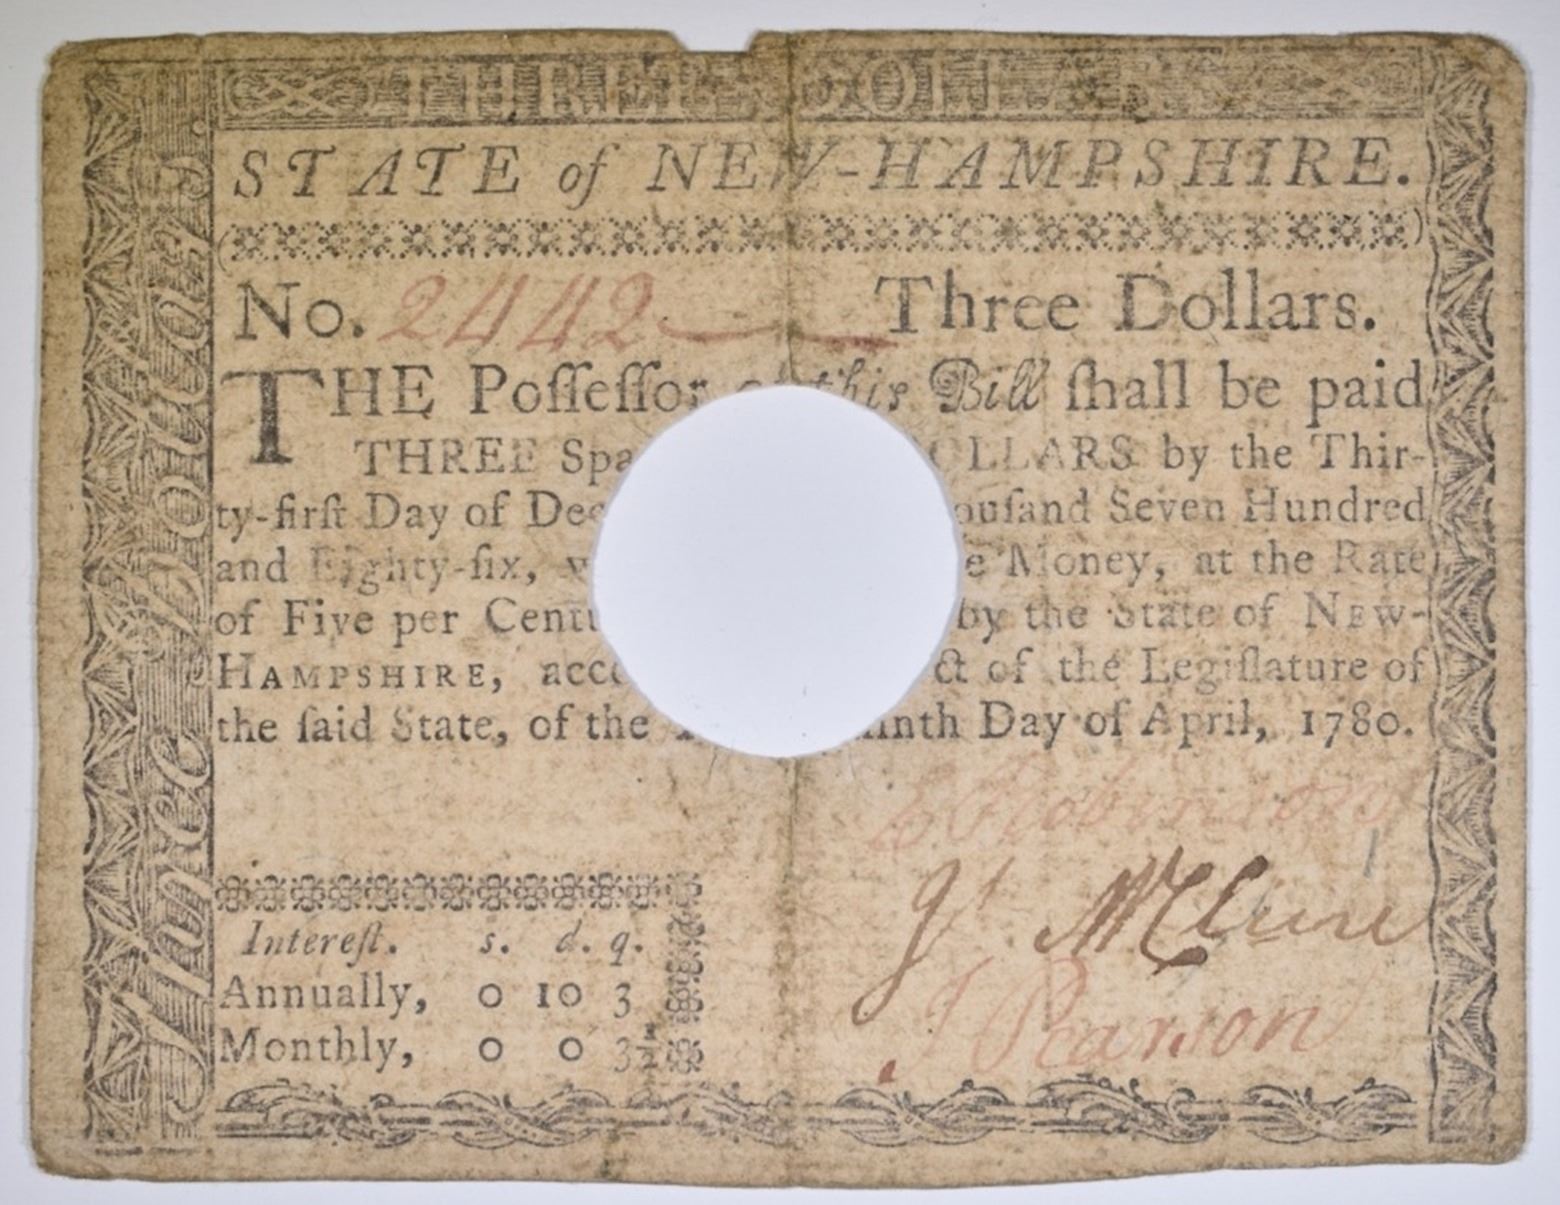 THREE DOLLARS
STATE of NEW-HAMPSHIRE.
No. 2442 Three Dollars.
THE Poſſeſſor this Bill ſhall be paid
THREE Spa OLLARS by the Thir-
ty-firſt Day of Dec ouſand Seven Hundred
and Eighty-ſix, e Money, at the Rate
of Five per Cent by the State of NEW-
HAMPSHIRE, acco ct of the Legiſlature of
the ſaid State, of the inth Day of April, 1780.
E Robinson
Jˢ McClure
J Pearson
Intereſt. s. d. q.
Annually, 0 10 3
Monthly, 0 0 3½
Three Dollars.